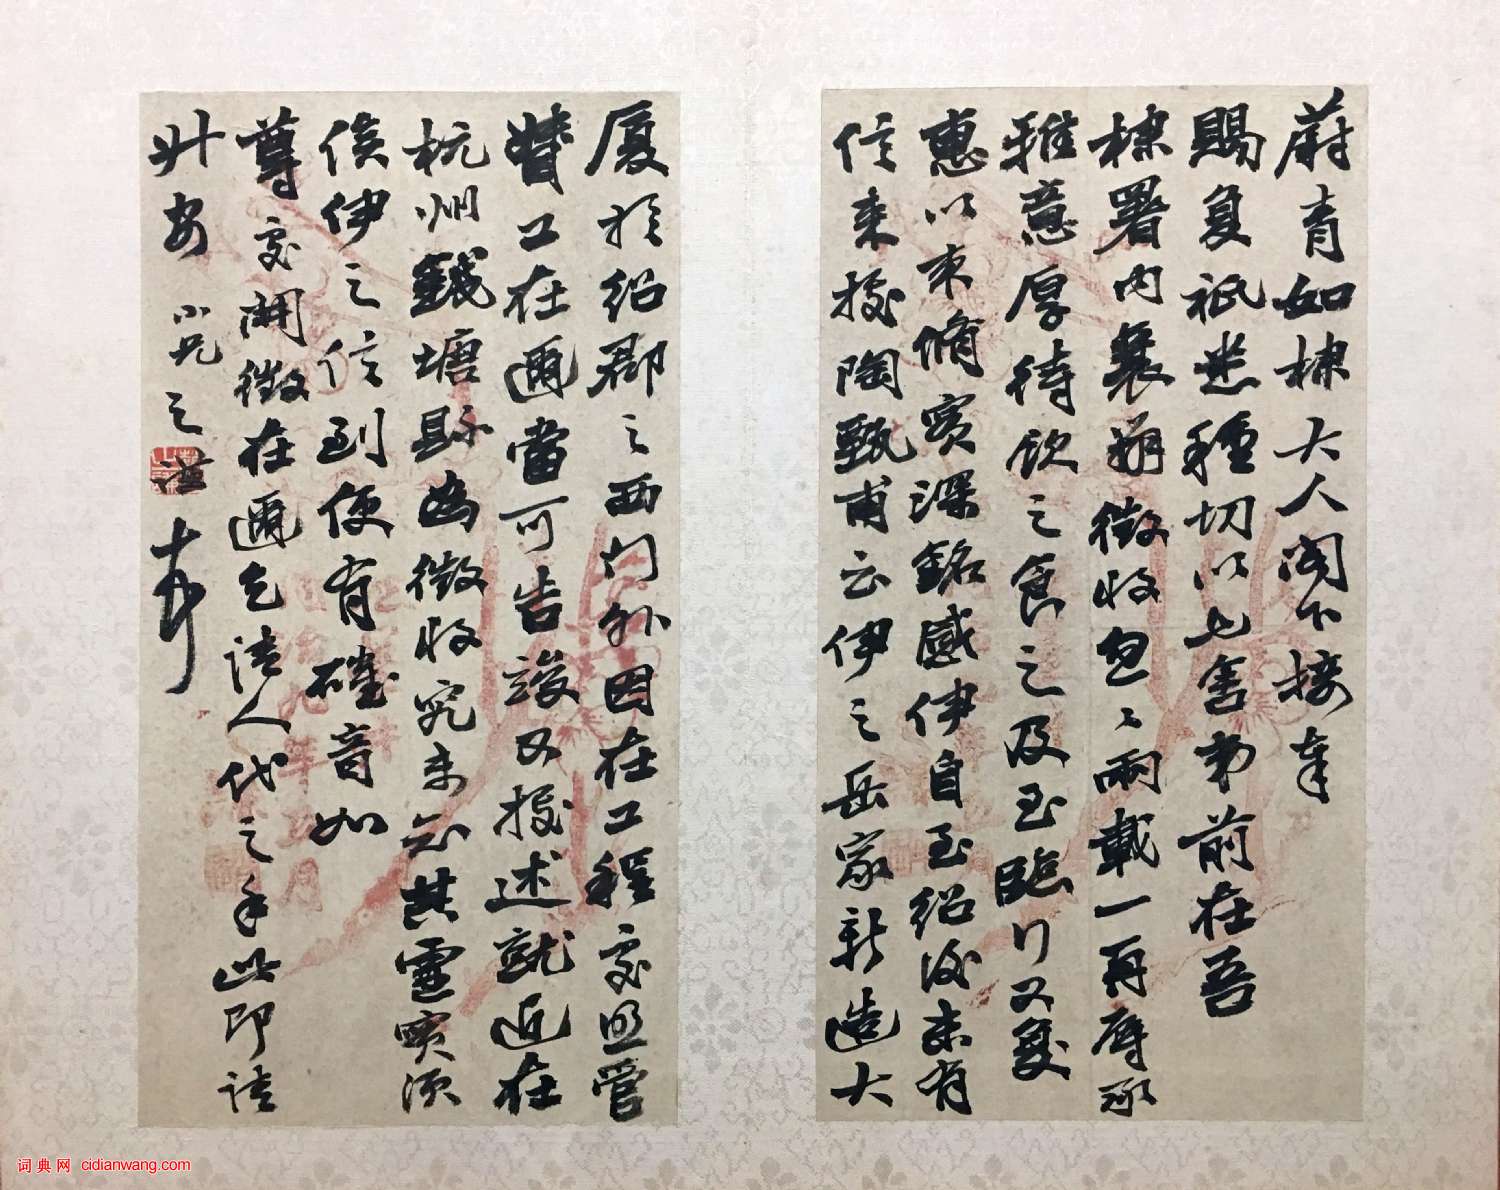 蔚青如棣大人阁下接奉
赐复祗悉种切以七舍弟前在吾
棣署内襄办徵收忽〻两载一再辱承
雅意厚待饮之食之及至临行又复
惠以束脩实深铭感伊自至绍后未有
信来按陶甄甫云伊之岳家新造大
厦于绍郡之西门外因在工程处照管
督工在迩当可告竣又授述就近在
杭州钱塘县为徵收究未知其虚实须
俟伊之信到便有确音如
尊处开徵在迩乞请人代之手此即请
升安 小兄之 顿
词典网 cidianwang.com